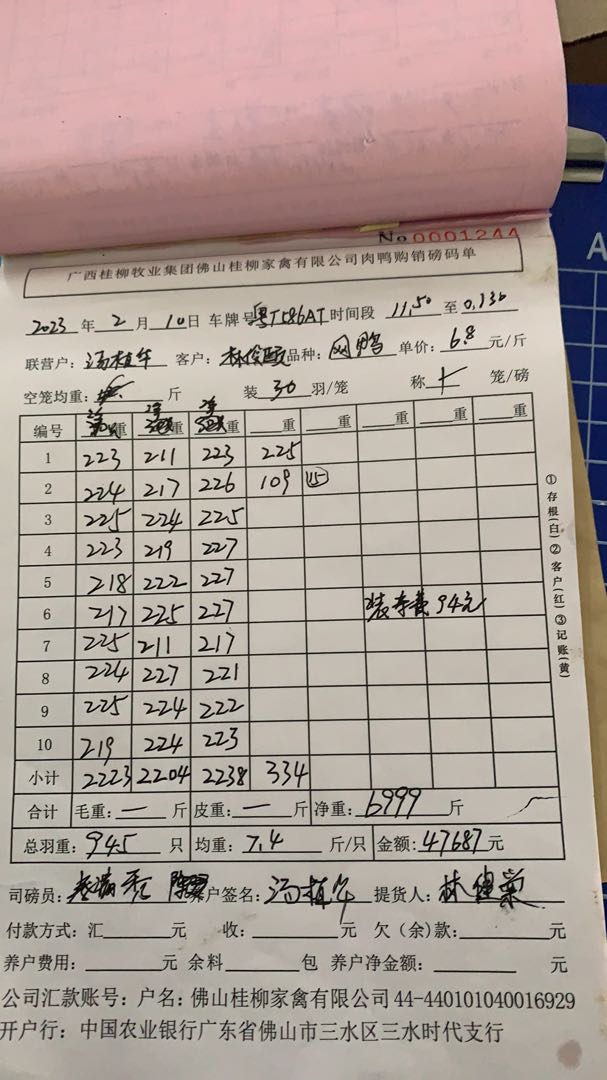 No 0001244
广西桂柳牧业集团佛山桂柳家禽有限公司肉鸭购销磅码单
2023 年 2 月 10 日 车牌号 粤T586AT 时间段 11.50 至 0.130
联营户: 汤植年 客户: 林俊 品种: 网鸭 单价: 6.8 元/斤
空笼均重: 斤 装 30 羽/笼 称 笼/磅
编号 净重 净重 净重 重 重 重 重 重
1 223 211 223 225
2 224 217 226 109 (15)
3 225 224 225
4 223 219 227
5 218 222 227
6 217 225 227 装车费94元
7 225 211 217
8 224 227 221
9 225 224 222
10 219 224 223
小计 2223 2204 2238 334
合计 毛重: — 斤 皮重: — 斤 净重: 6999 斤
总羽重: 945 只 均重: 7.4 斤/只 金额: 47687 元
司磅员: 户签名: 汤植年 提货人: 林
付款方式: 汇 元 收: 元 欠(余)款: 元
养户费用: 元 余料 包 养户净金额: 元
公司汇款账号: 户名: 佛山桂柳家禽有限公司 44-440101040016929
开户行: 中国农业银行广东省佛山市三水区三水时代支行
①存根(白)②客户(红)③记账(黄)
A